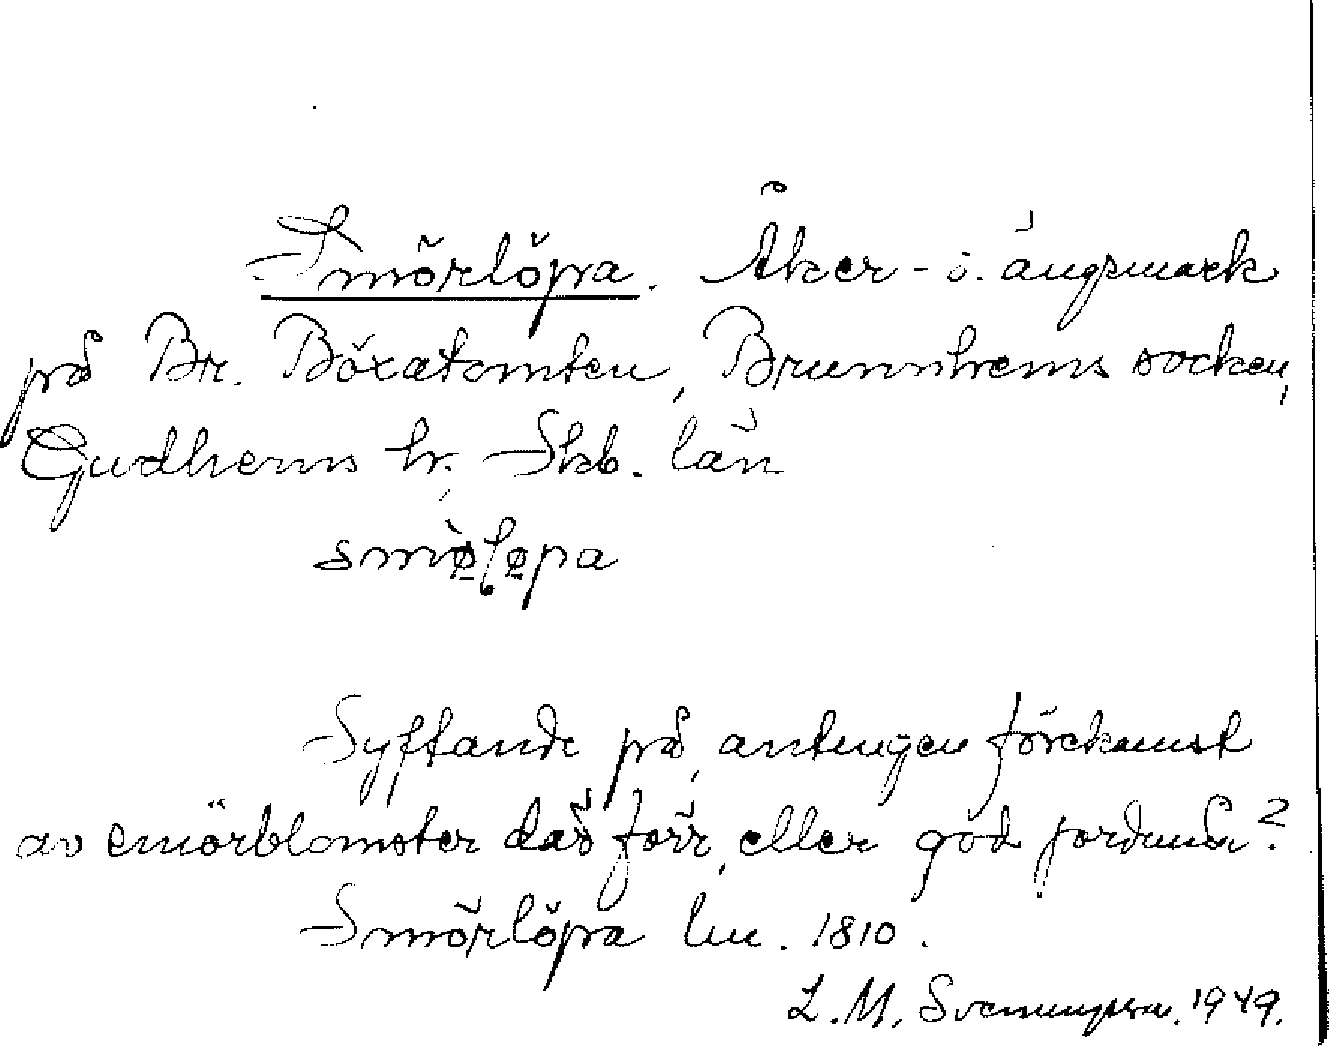 Smörlöpa. Åker- o. ängsmark
på Br. Böxatomten, Brunnhems socken,
Gudhems hr. Skb. län
smø̀ḷøpa
Syftande på, antingen förekomst
av smörblomster där förr, eller god jordmån?
Smörlöpa lm. 1810.
L. M. Svenungsson. 1949.